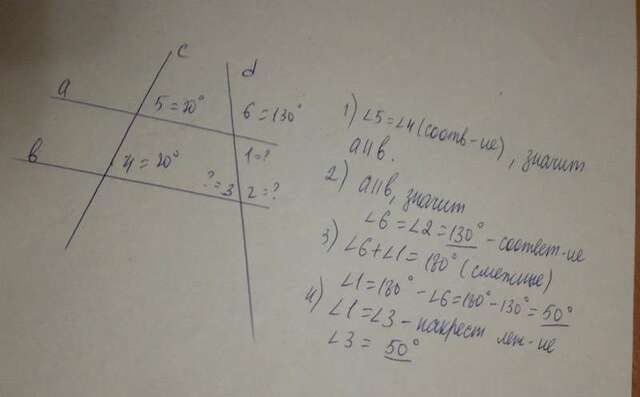 c
d
a
5 = 20°
6 = 130°
1 = ?
b
4 = 20°
? = 3
2 = ?
1) ∠5 = ∠4 (соотв-ие), значит
a || b.
2) a || b, значит
∠6 = ∠2 = 130° - соответ-ие
3) ∠6 + ∠1 = 180° (смежные)
∠1 = 180° - ∠6 = 180° - 130° = 50°
4) ∠1 = ∠3 - накрест леж-ие
∠3 = 50°